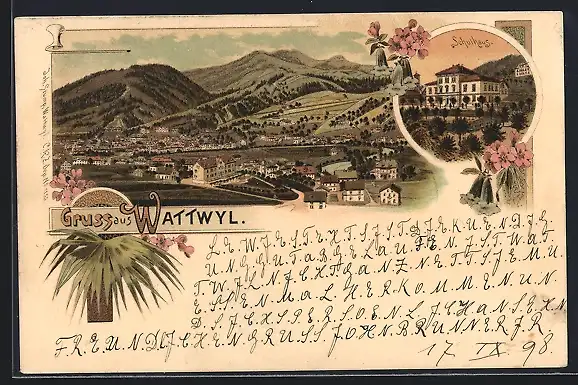 Schulhaus.
Gruss aus WATTWYL.
L.E.W.J.E.S.T.E.H.T.S.J.S.T.D.J.E.K.U.E.N.D.J.G.
U.N.G.G.U.T.A.B.G.E.L.A.U.F.E.N.J.S.T.W.A.T.
T.W.J.L.N.J.C.H.T.G.A.N.Z.N.E.T.T.S.J.E.M.U.
E.S.S.E.N.M.A.L.H.E.R.K.O.M.M.E.N.U.N.
D.S.J.C.H.S.P.E.R.S.O.E.N.L.J.C.H.A.N.S.E.H.N
F.R.E.U.N.D.L.J.C.H.E.N.G.R.U.S.S.J.O.H.N.B.R.U.N.N.E.R.J.R.
17 IX 98.